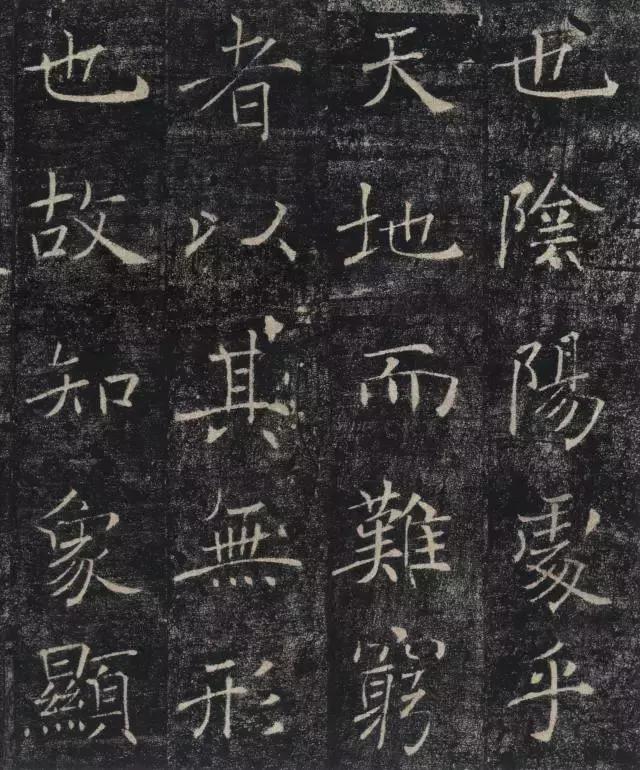 也陰陽處乎
天地而難窮
者以其無形
也故知象顯